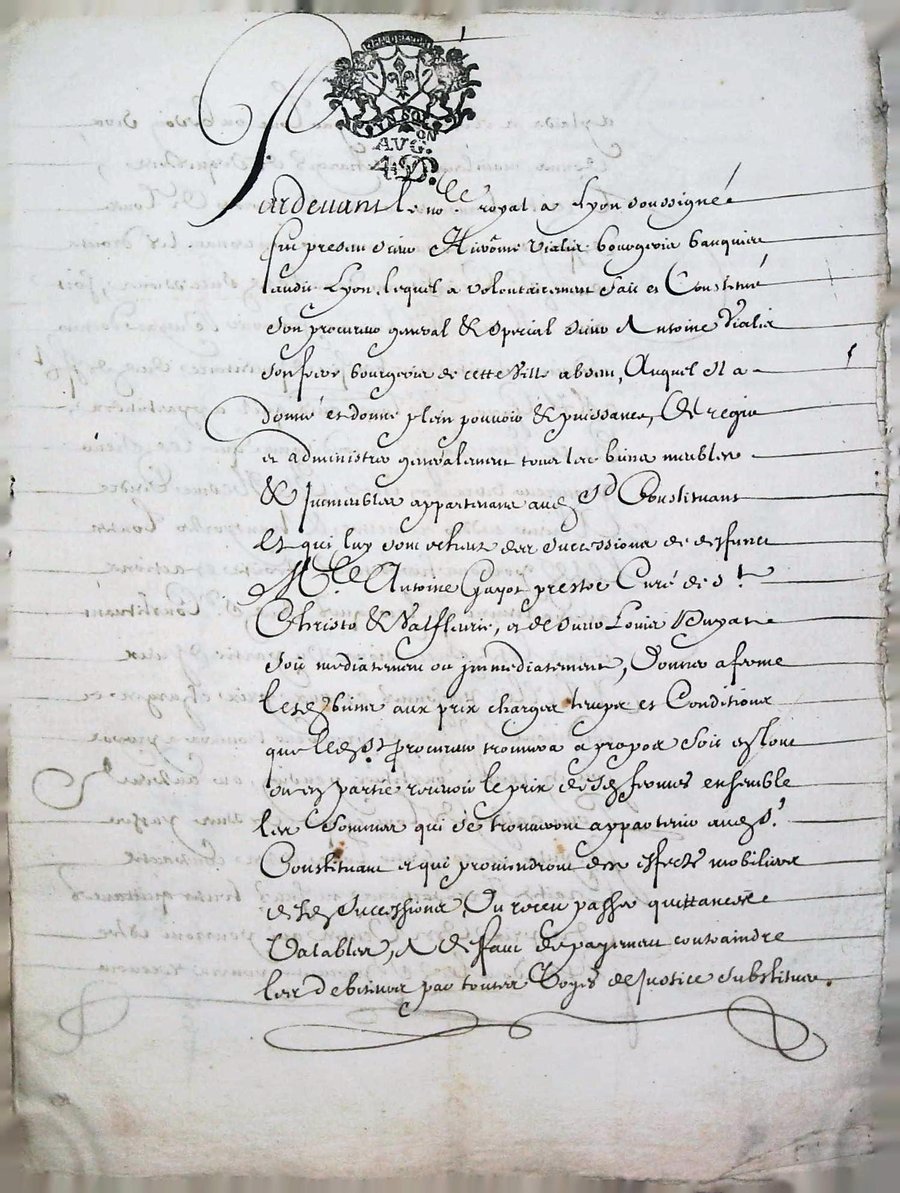 UN SOL
AVG.ON
4.D.
Pardevant le no.re royal a Lyon soussigné
fut present sieur Hierôme Vialis bourgeois banquier
audit Lyon, lequel a volontairement fait et Constitué
son procureur general & special sieur Antoine Vialis
son frere bourgeois de cette Ville absent, Auquel Il a
donné et donne plein pouvoir & puissance, De regir
et administrer generalement tous les biens meubles
& Immeubles appartenans aud. Sr Constituant
Et qui luy sont echeus des successions de deffunct
M.re Antoine Gayot prestre Curé de St
Christo & Valfleurie, et de sieur Louis
soit mediatement ou jmmediatement, Donner a ferme
lesd. biens aux prix charges temps et Conditions
que led. Sr procureur trouvera a propos soit en tout
ou en partie recevoir le prix desd. fermes ensemble
les Sommes qui se trouveront appartenir aud. Sr
Constituant et qui proviendront des effects mobiliers
desd. successions, Du receu passer quittances
Valables, A deffaut de payement contraindre
les debiteurs par toutes Voyes de justice substituer.